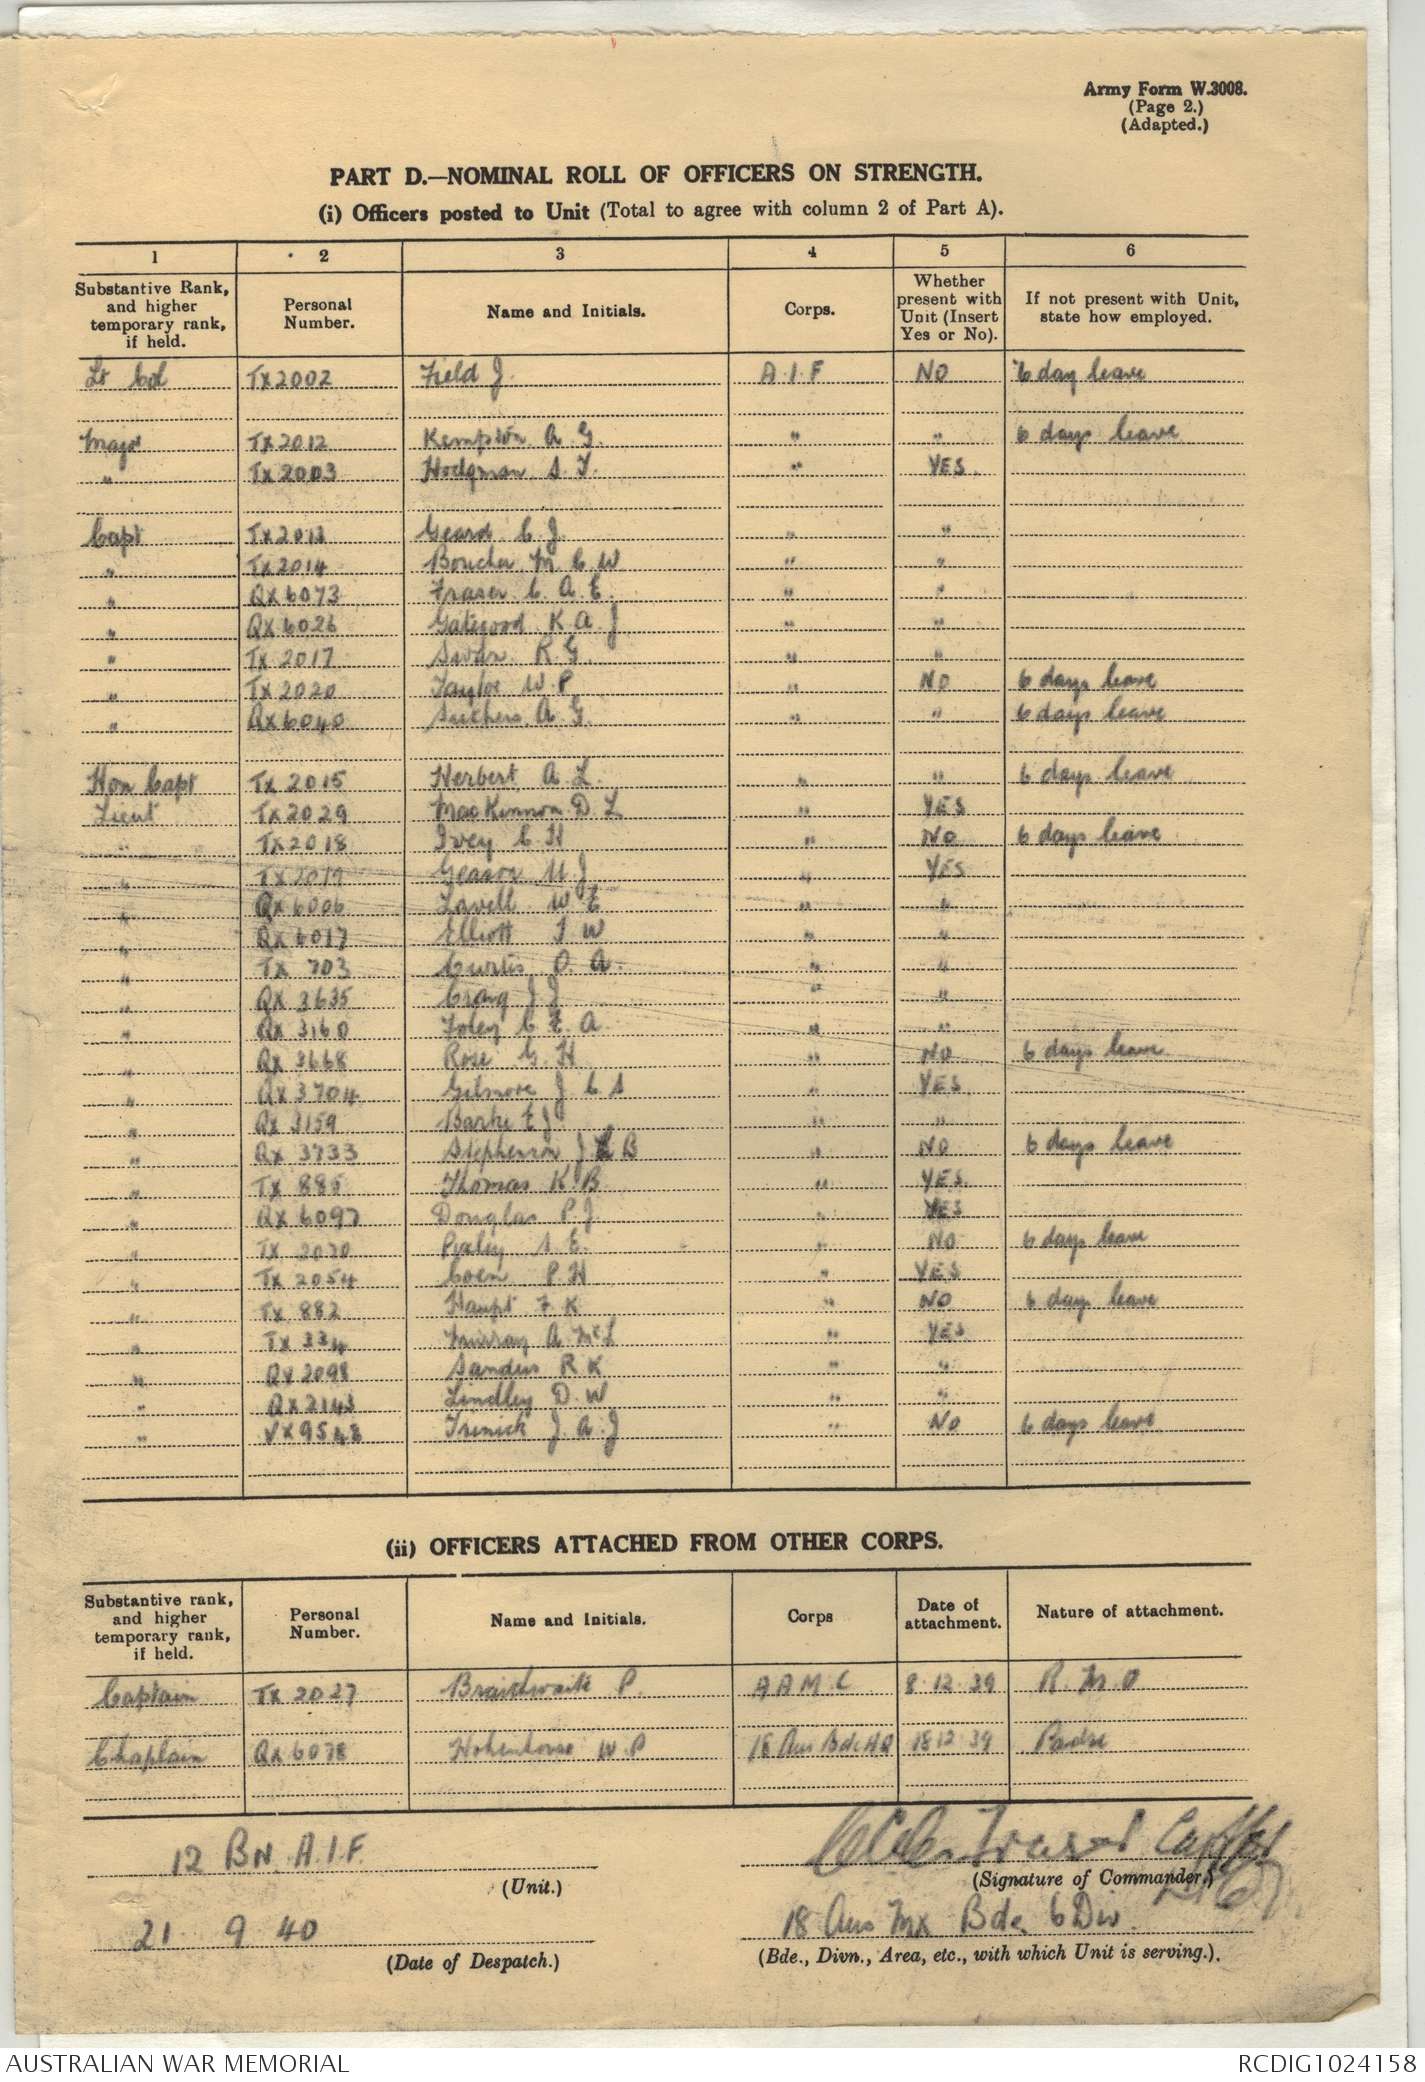 Army Form W.3008.
(Page 2.)
(Adapted.)
PART D.—NOMINAL ROLL OF OFFICERS ON STRENGTH.
(i) Officers posted to Unit (Total to agree with column 2 of Part A).
1 2 3 4 5 6
Substantive Rank, and higher temporary rank, if held. Personal Number. Name and Initials. Corps. Whether present with Unit (Insert Yes or No). If not present with Unit, state how employed.
Lt Col TX2002 Field J. A.I.F NO 6 day leave
Major TX2012 Kempson A G. " " 6 days leave
" TX2003 Hodgman S T. " YES
Capt TX2013 Geard C J. " "
" TX2014 Boucher M C W " "
" QX6073 Fraser C. A E. " "
" QX6026 Gategood K A J " "
" TX2017 Swan R G. " "
" TX2020 Taylor W P " NO 6 days leave
" QX6040 Suthers A G. " " 6 days leave
Hon Capt TX2015 Herbert A L. " " 6 days leave
Lieut TX2029 MacKinnon D L " YES
" TX2018 Ivey C H " NO 6 days leave
" TX2019 Geason M J " YES
" QX6006 Lavell W E " "
" QX6017 Elliott F W " "
" TX 703 Curtis O. A. " "
" QX 3635 Craig J J " "
" QX 3160 Foley C E A " "
" QX 3668 Rose G. H " NO 6 days leave
" QX 3704 Gilmore J C S " YES
" QX 3159 Barke E J " "
" QX 3733 Stephenson J B " NO 6 days leave
" TX 885 Thomas K B " YES
" QX 6097 Douglas P. J " YES
" TX 2030 Pixley S. E. " NO 6 days leave
" TX 2054 Coen P H " YES
" TX 882 Haupt F K " NO 6 days leave
" TX 334 Murray A McL " YES
" QX2098 Sanders R K " "
" QX2143 Lindley D. W " "
" VX9548 Trinick J. A. J " NO 6 days leave
(ii) OFFICERS ATTACHED FROM OTHER CORPS.
Substantive rank, and higher temporary rank, if held. Personal Number. Name and Initials. Corps Date of attachment. Nature of attachment.
Captain TX 2027 Braithwaite P. A A M C 8.12.39 R. M. O
Chaplain QX6078 Hohenhouse W P 18 Aus Bde HQ 18 12 39 Padre
12 BN. A.I.F. Capt
(Unit.) (Signature of Commander.)
21 9 40 18 Aus Inf Bde 6 Div.
(Date of Despatch.) (Bde., Divn., Area, etc., with which Unit is serving.).
AUSTRALIAN WAR MEMORIAL RCDIG1024158